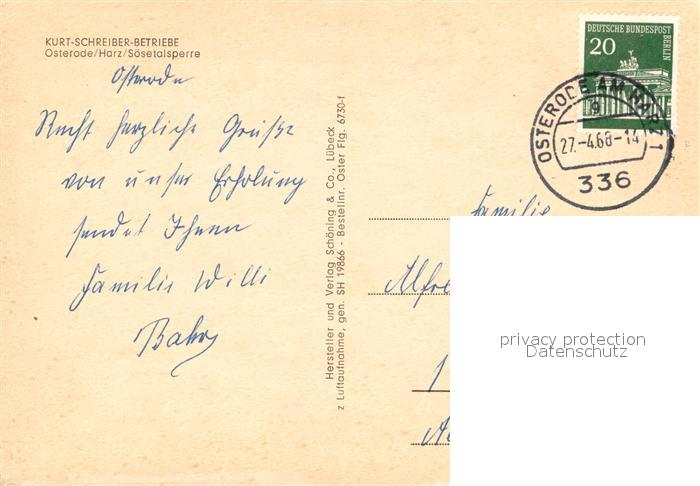 KURT-SCHREIBER-BETRIEBE
Osterode/Harz/Sösetalsperre
Osterode
Recht herzliche Grüße
von unser Erholung
sendet Ihnen
Familie Willi
Hersteller und Verlag Schöning & Co., Lübeck
z Luftaufnahme, gen. SH 19866 - Bestellnr. Oster Flg. 6730-f
DEUTSCHE BUNDESPOST
BERLIN
20
OSTERODE AM HARZ 1
g
27.-4.68-14
336
Familie
privacy protection
Datenschutz